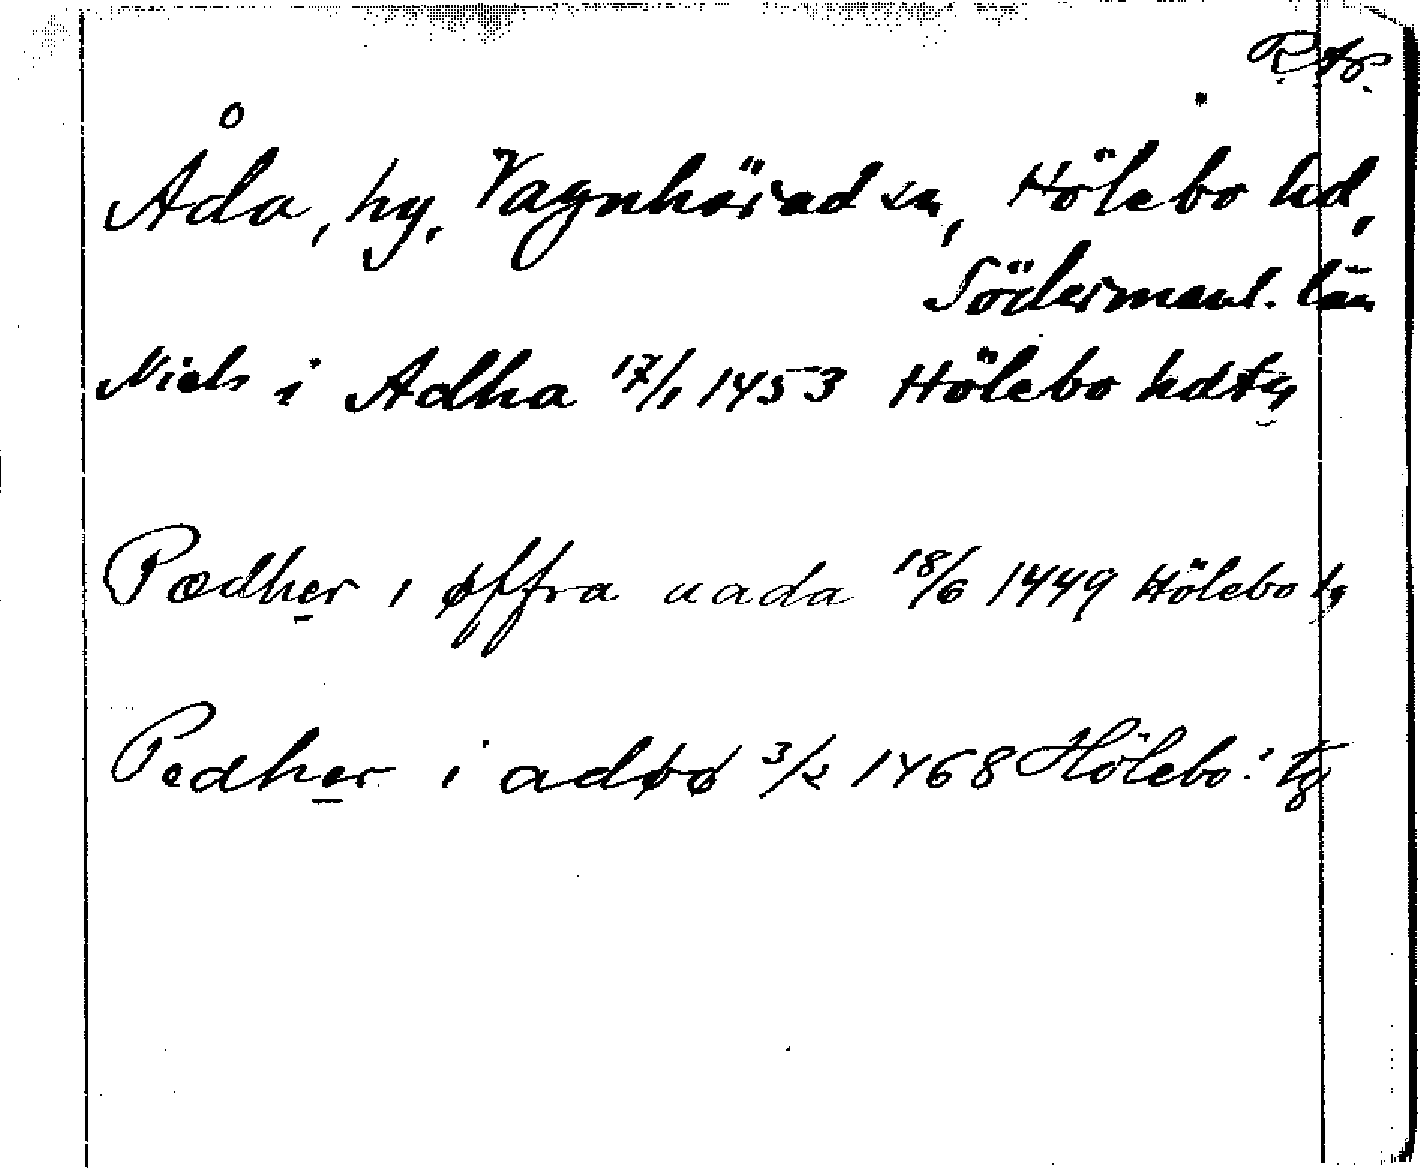 Åda, by, Vagnhärad sn, Hölebo hd,
Södermanl. län
Niels i Adha 17/1 1453 Hölebo hdtg
Pædher i øffra aada 18/6 1449 Hölebo tg
Pedher i adhø 3/2 1468 Hölebo: tg